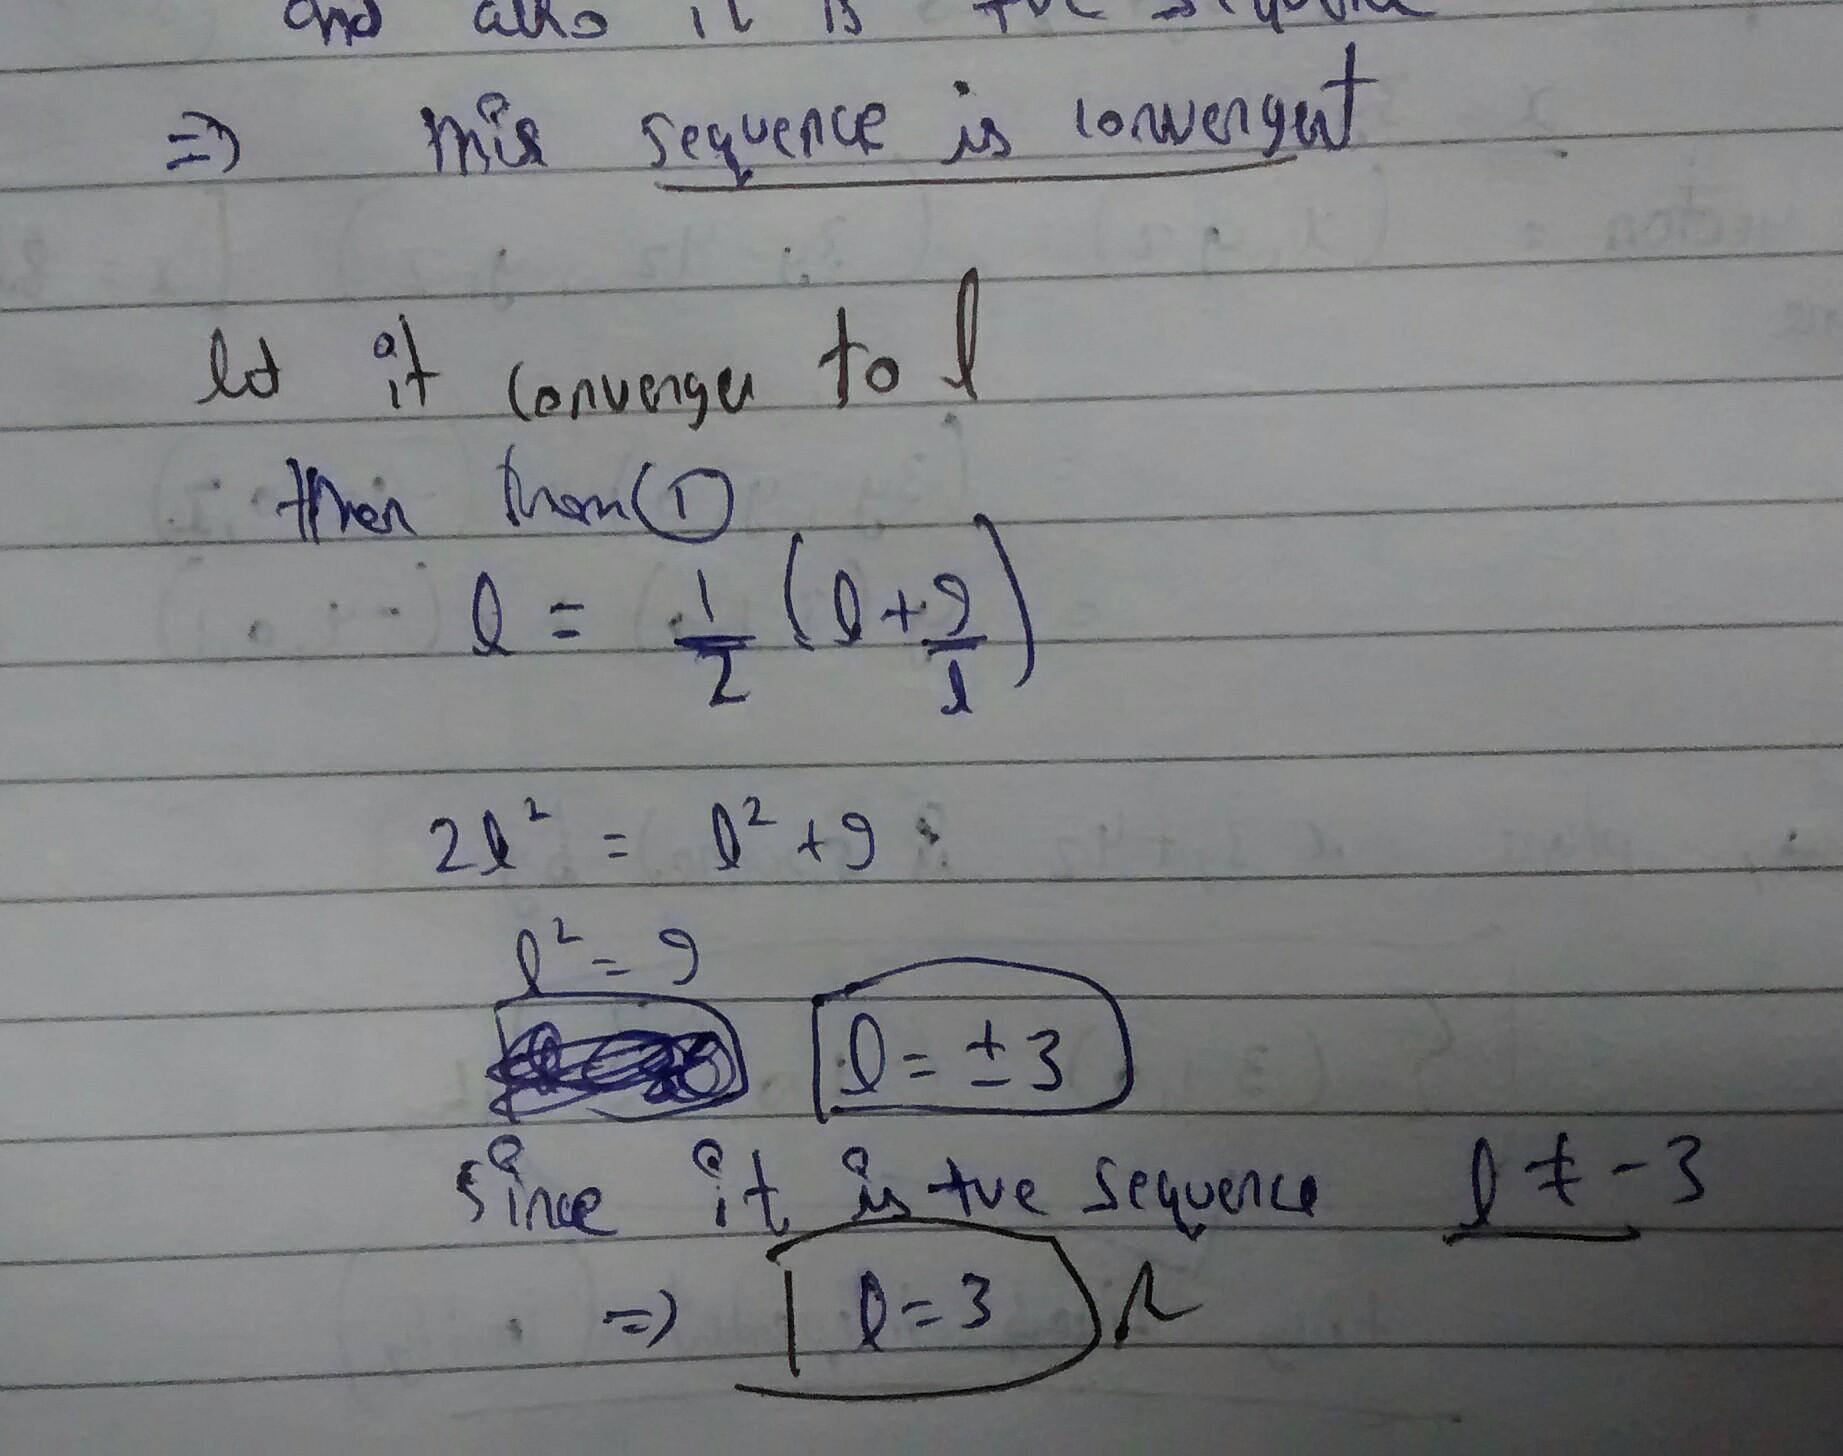 and also it is +ve sequence
=) this sequence is convergent
let it converges to l
then from ①
l = 1/2 (l + 9/l)
2l² = l² + 9
l² = 9
l = ± 3
since it is +ve sequence l ≠ - 3
=) l = 3